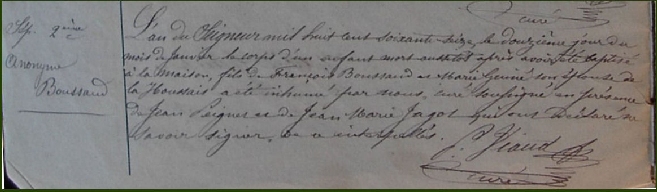 curé
Sép. 2ème
Anonyme
Boussaud
L'an du Seigneur mil huit cent soixante seize le douzième jour du
mois de Janvier le corps d'un enfant mort aussitôt après avoir été baptisé
à la maison, fils de François Boussaud et Marie Guiné son épouse de
la Houssais a été inhumé par nous, curé soussigné en présence
de Jean Peignet et de Jean Marie Jagot qui ont déclaré ne
savoir signer, de ce interpellés.
J. Biaud
curé